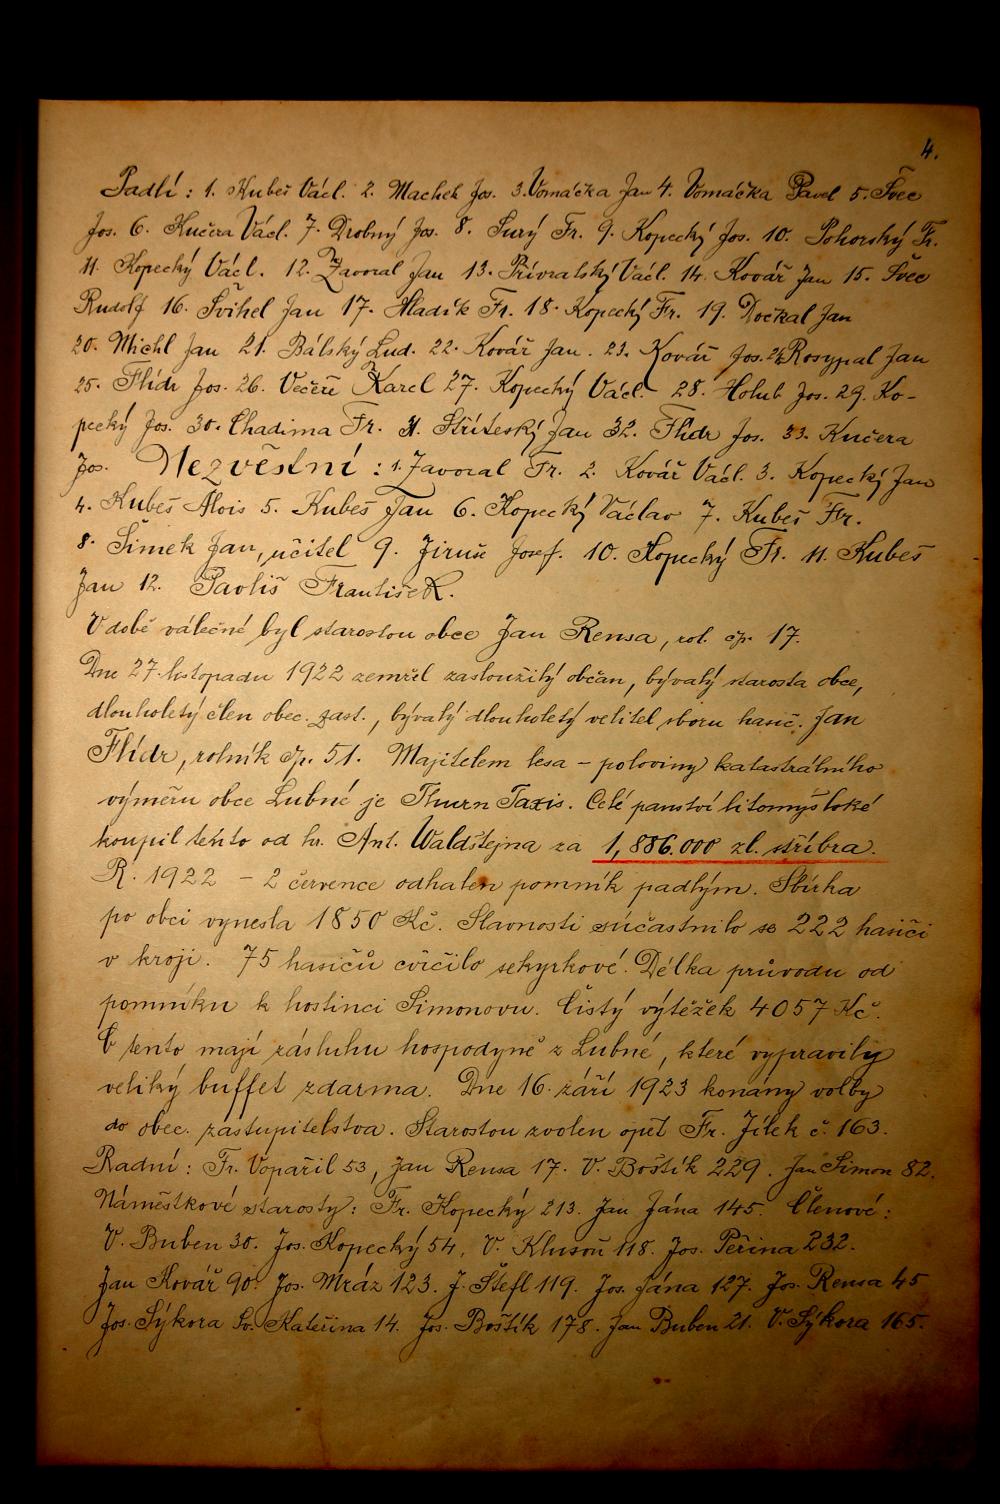 4.
Padlí: 1. Kubeš Václ. 2. Machek Jos. 3. Vomáčka Jan 4. Vomáčka Pavel 5. Švec
Jos. 6. Kučera Václ. 7. Drobný Jos. 8. Surý Fr. 9. Kopecký Jos. 10. Pohorský Fr.
11. Kopecký Václ. 12. Zavoral Jan 13. Přívratský Václ. 14. Kovář Jan 15. Švec
Rudolf 16. Švihel Jan 17. Hladík Fr. 18. Kopecký Fr. 19. Dočkal Jan
20. Michl Jan 21. Bálský Lud. 22. Kovář Jan. 23. Kovář Jos. 24. Rosypal Jan
25. Flídr Jos. 26. Večeř Karel 27. Kopecký Václ. 28. Holub Jos. 29. Ko-
pecký Jos. 30. Chadima Fr. 31. Stříteský Jan 32. Flídr Jos. 33. Kučera
Jos. Nezvěstní: 1. Zavoral Fr. 2. Kovář Václ. 3. Kopecký Jan
4. Kubeš Alois 5. Kubeš Jan 6. Kopecký Václav 7. Kubeš Fr.
8. Šimek Jan, učitel 9. Jiruše Josef. 10. Kopecký Fr. 11. Kubeš
Jan 12. Pavliš František.
V době válečné byl starostou obce Jan Rensa, rol. čp. 17.
Dne 27. listopadu 1922 zemřel zasloužilý občan, bývalý starosta obce,
dlouholetý člen obec. zast., bývalý dlouholetý velitel sboru hasič. Jan
Flídr, rolník čp. 51. Majitelem lesa – poloviny katastrálního
výměru obce Lubné je Thurn Taxis. Celé panství litomyšlské
koupil tento od hr. Ant. Waldštejna za 1,886.000 zl. stříbra.
R. 1922 – 2 července odhalen pomník padlým. Sbírka
po obci vynesla 1850 Kč. Slavnosti súčastnilo se 222 hasiči
v kroji. 75 hasičů cvičilo sekyrkové. Délka průvodu od
pomníku k hostinci Simonovu. Čistý výtěžek 4057 Kč.
O tento mají zásluhu hospodyně z Lubné, které vypravily
veliký buffet zdarma. Dne 16. září 1923 konány volby
do obec. zastupitelstva. Starostou zvolen opět Fr. Jílek č. 163.
Radní: Fr. Vopařil 53, Jan Rensa 17. V. Boštík 229. Jan Simon 82.
Náměstkové starosty: Fr. Kopecký 213. Jan Jána 145. Členové:
V. Buben 30. Jos. Kopecký 54, V. Klusoň 118. Jos. Peřina 232.
Jan Kovář 90. Jos. Mráz 123. J. Štefl 119. Jos. Jána 127. Jos. Rensa 45
Jos. Sýkora Sv. Kateřina 14. Jos. Boštík 178. Jan Buben 21. V. Sýkora 165.